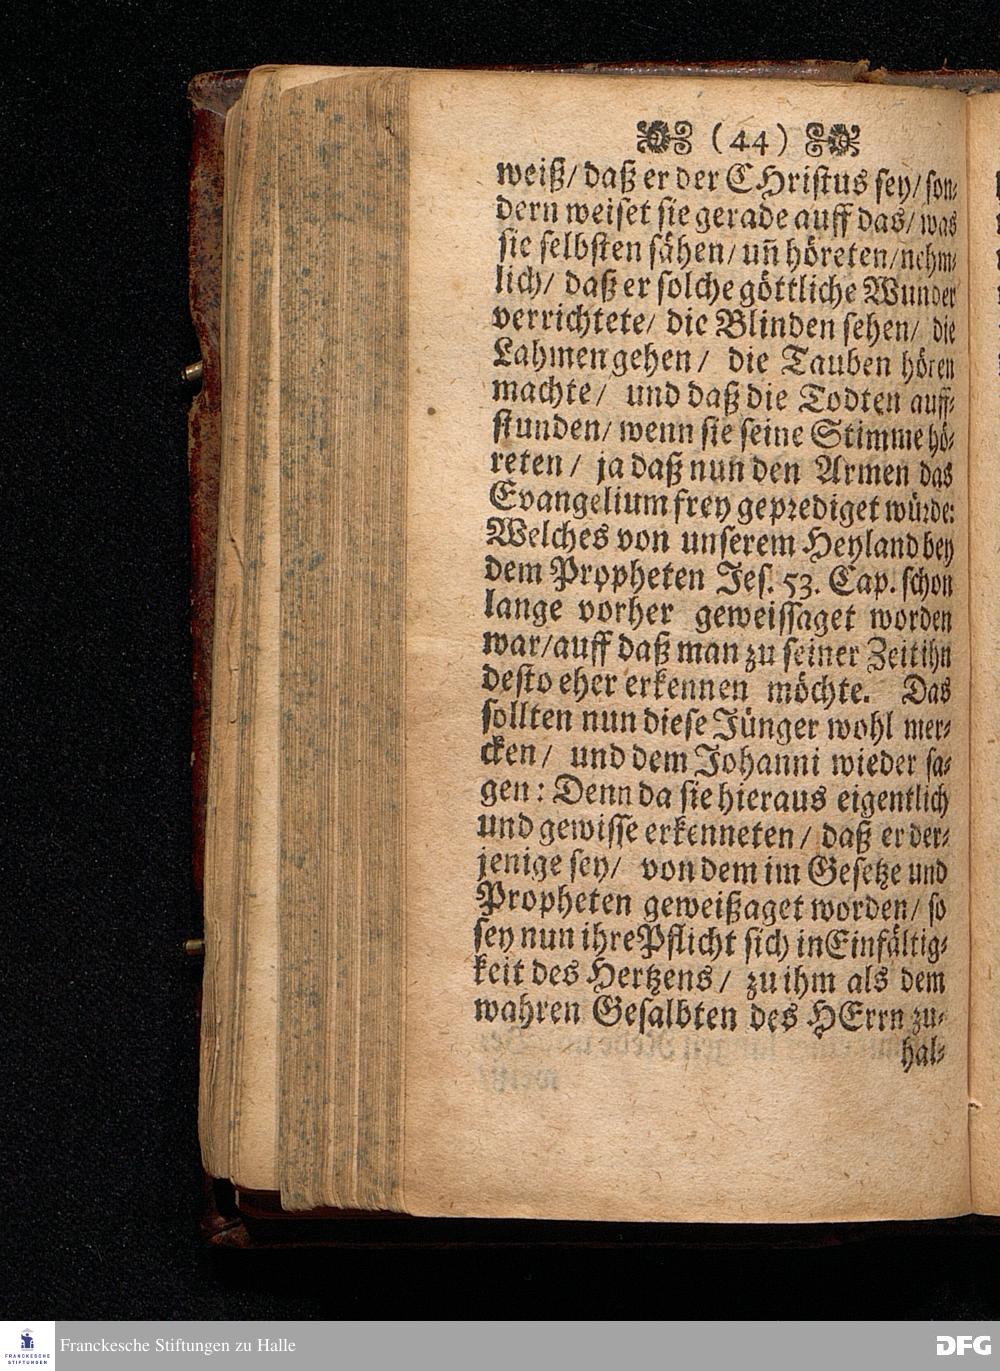 (44)
weiß/ daß er der CHristus sey/ son-
dern weiset sie gerade auff das/ was
sie selbsten sähen/ uñ höreten/ nehm-
lich/ daß er solche göttliche Wunder
verrichtete/ die Blinden sehen/ die
Lahmen gehen/ die Tauben hören
machte/ und daß die Todten auff-
stunden/ wenn sie seine Stimme hö-
reten/ ja daß nun den Armen das
Evangelium frey geprediget würde:
Welches von unserem Heyland bey
dem Propheten Jes. 53. Cap. schon
lange vorher geweissaget worden
war/ auff daß man zu seiner Zeit ihn
desto eher erkennen möchte. Das
sollten nun diese Jünger wohl mer-
cken/ und dem Johanni wieder sa-
gen: Denn da sie hieraus eigentlich
und gewisse erkenneten/ daß er der-
jenige sey/ von dem im Gesetze und
Propheten geweißaget worden/ so
sey nun ihre Pflicht sich in Einfältig-
keit des Hertzens/ zu ihm als dem
wahren Gesalbten des HErrn zu-
hal-
FRANCKESCHE
STIFTUNGEN
Franckesche Stiftungen zu Halle
DFG